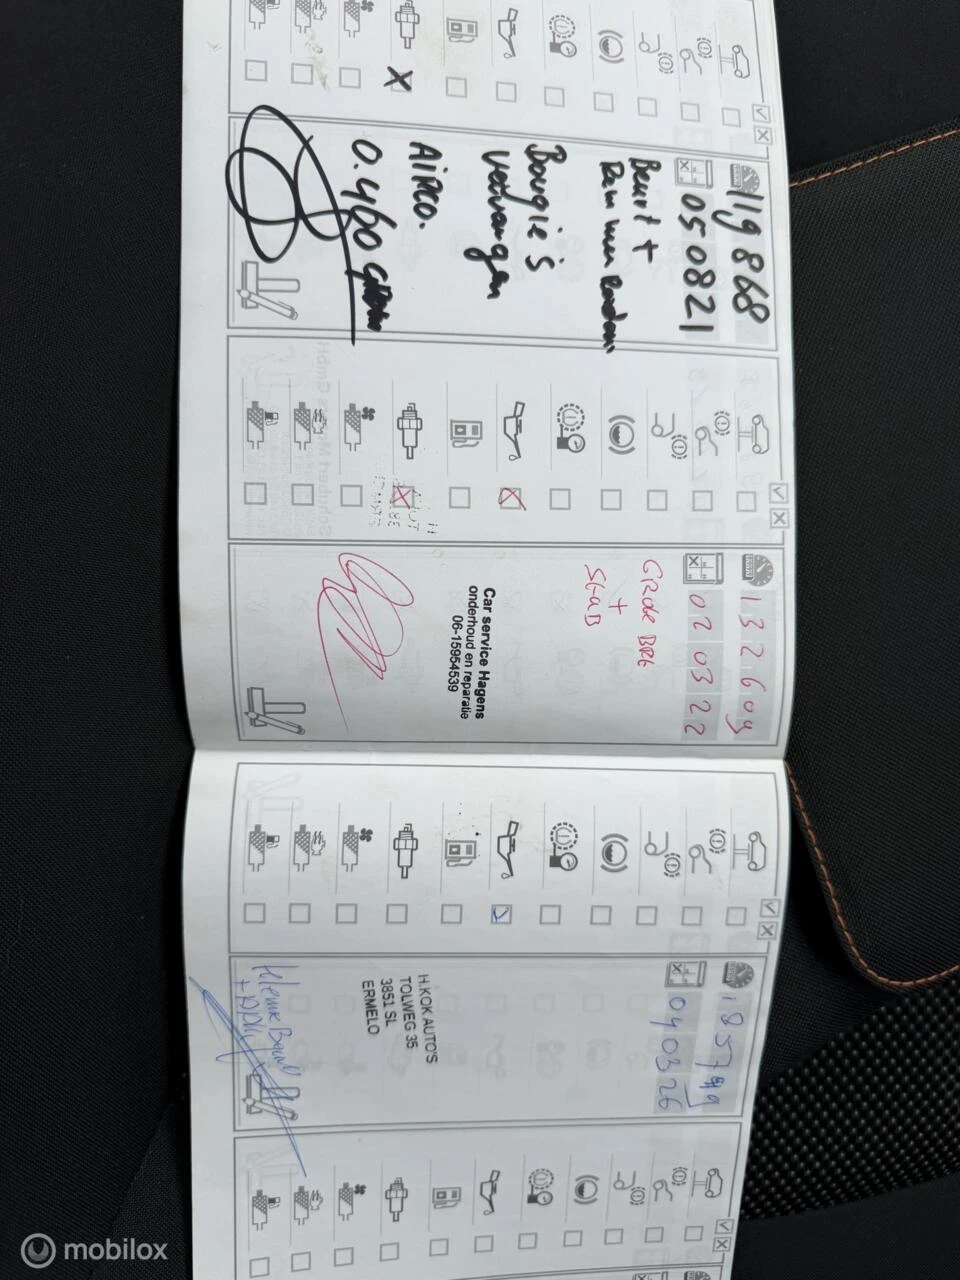 119868
050821
Beurt +
Bougie's
Vervangen
AIRCO.
0.460
132609
02 03 22
GRote BRt
+
Car service Hagens
onderhoud en reparatie
06-15954539
185799
040326
H.KOK AUTO'S
TOLWEG 35
3851 SL
ERMELO
Kleine Beurt
mobilox